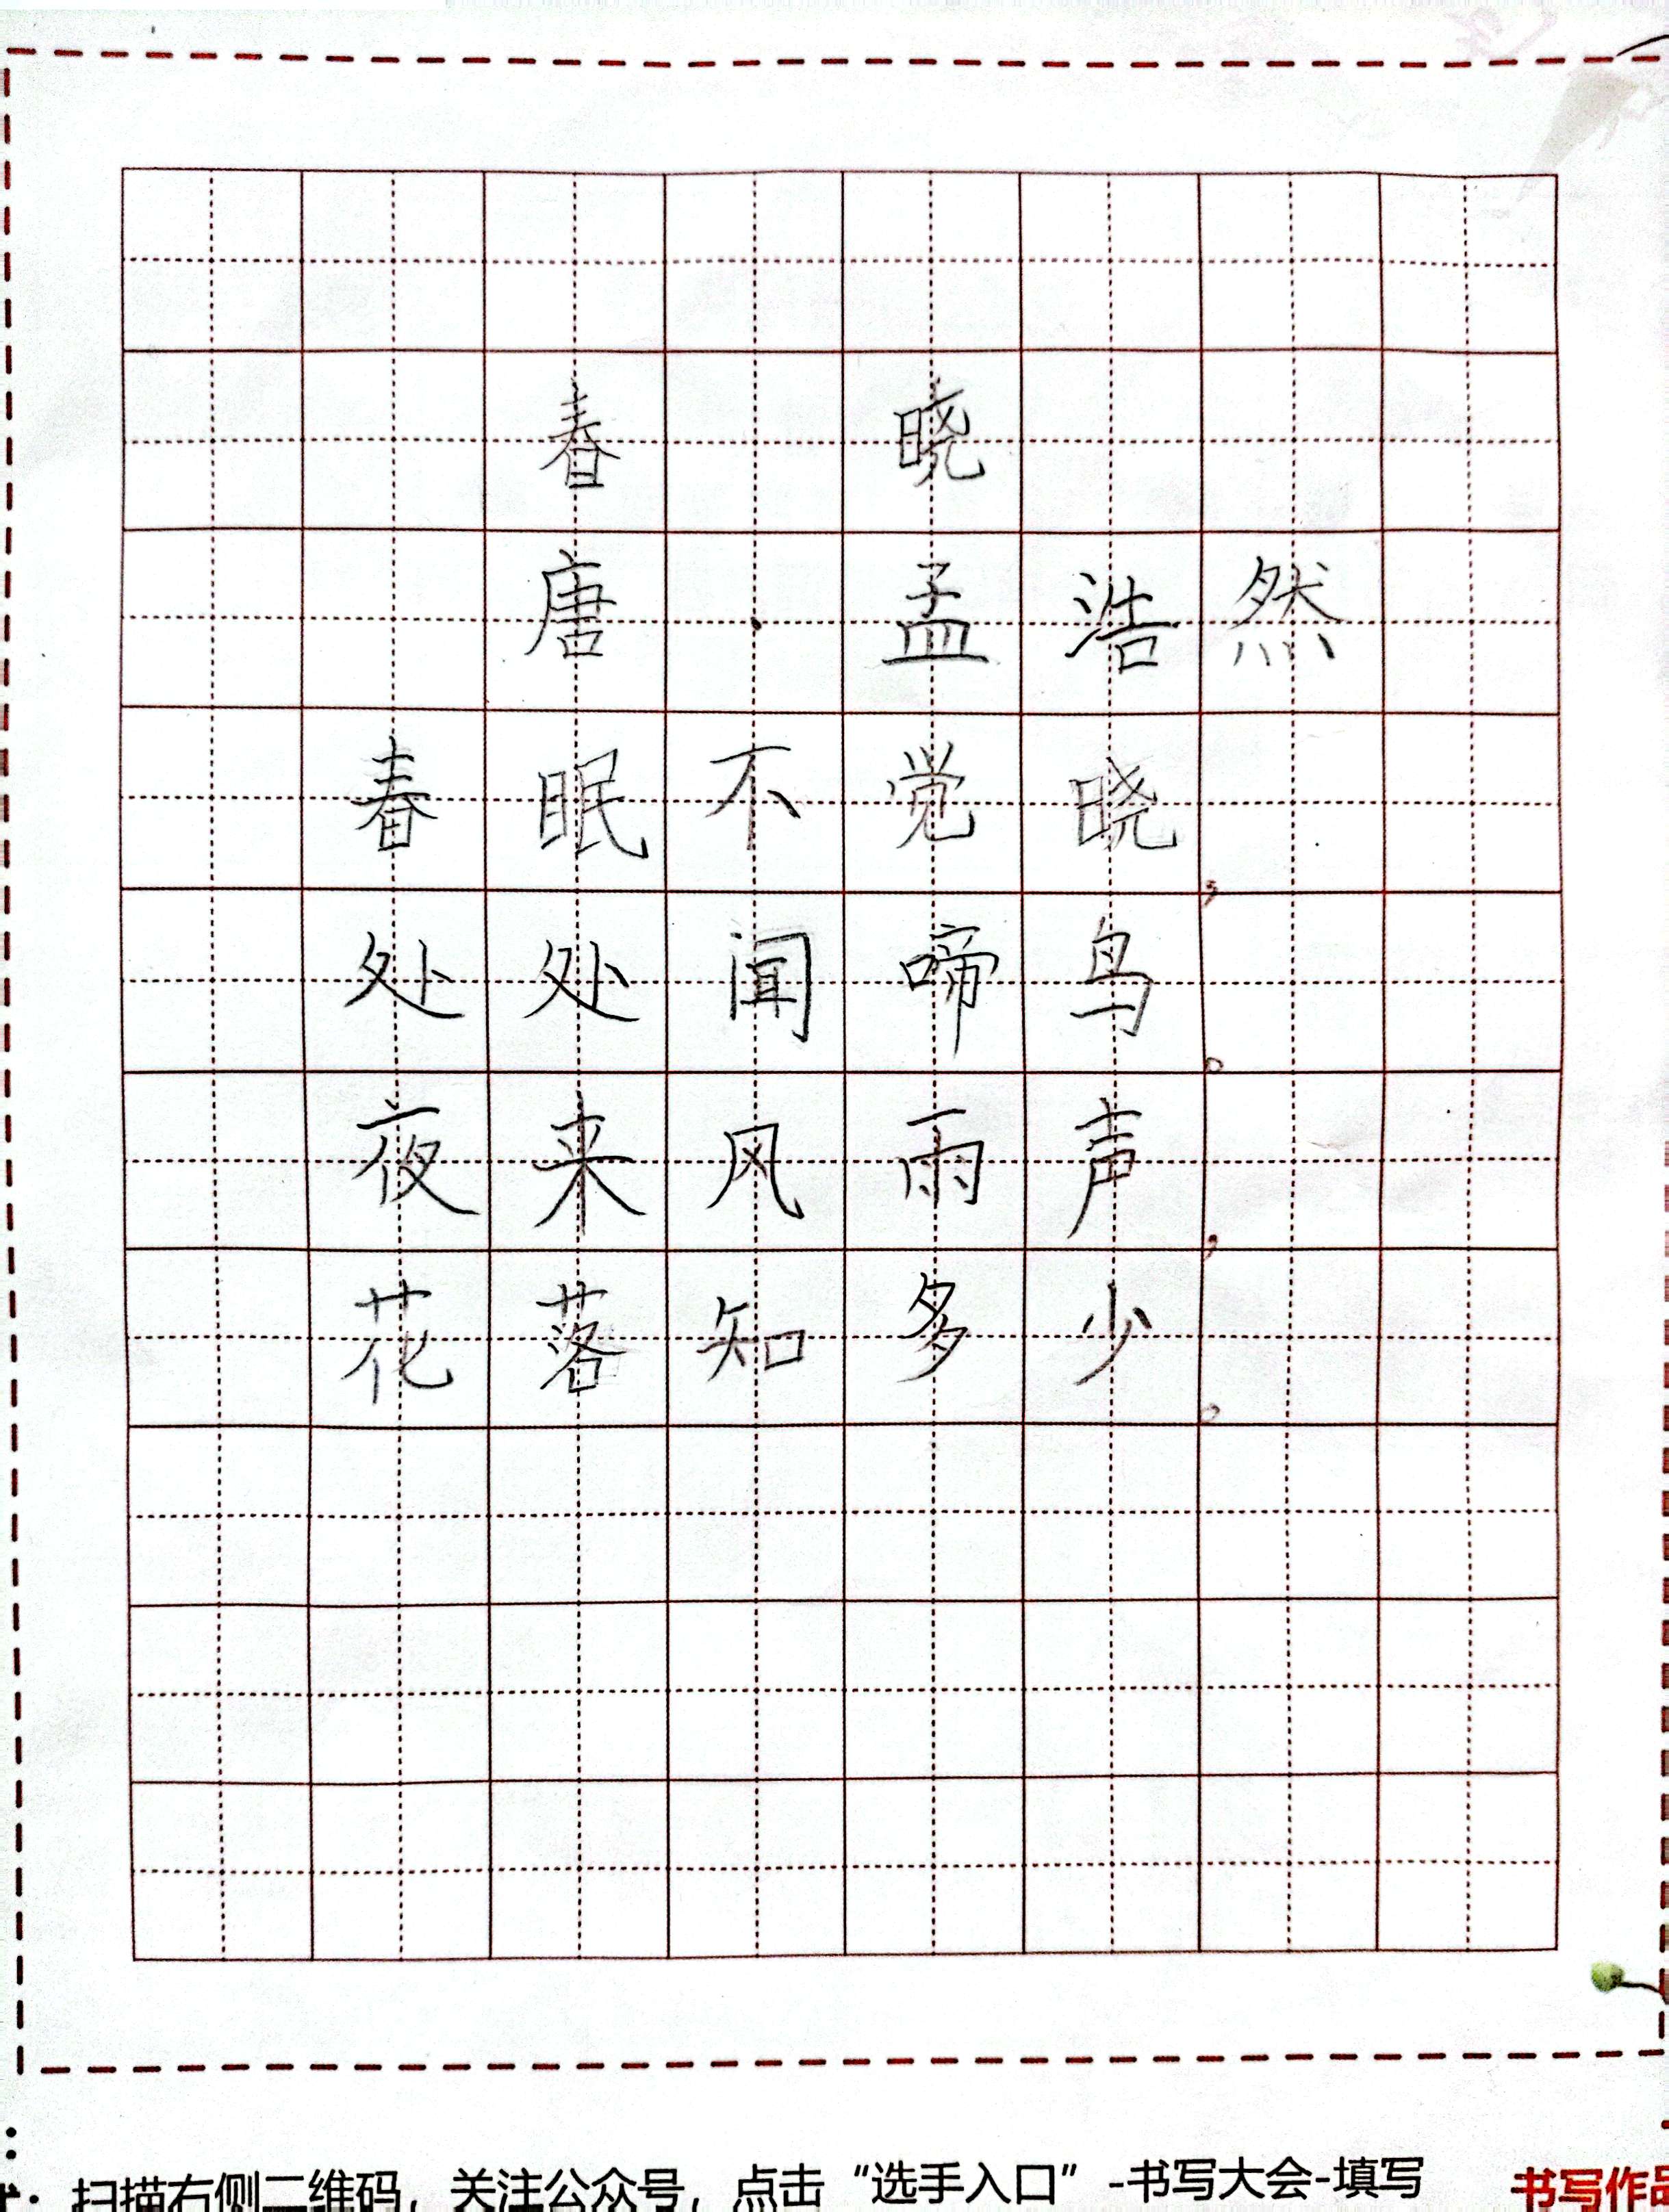 春晓
唐·孟浩然
春眠不觉晓，
处处闻啼鸟。
夜来风雨声，
花落知多少。
：扫描右侧二维码，关注公众号，点击“选手入口”-书写大会-填写
书写作品